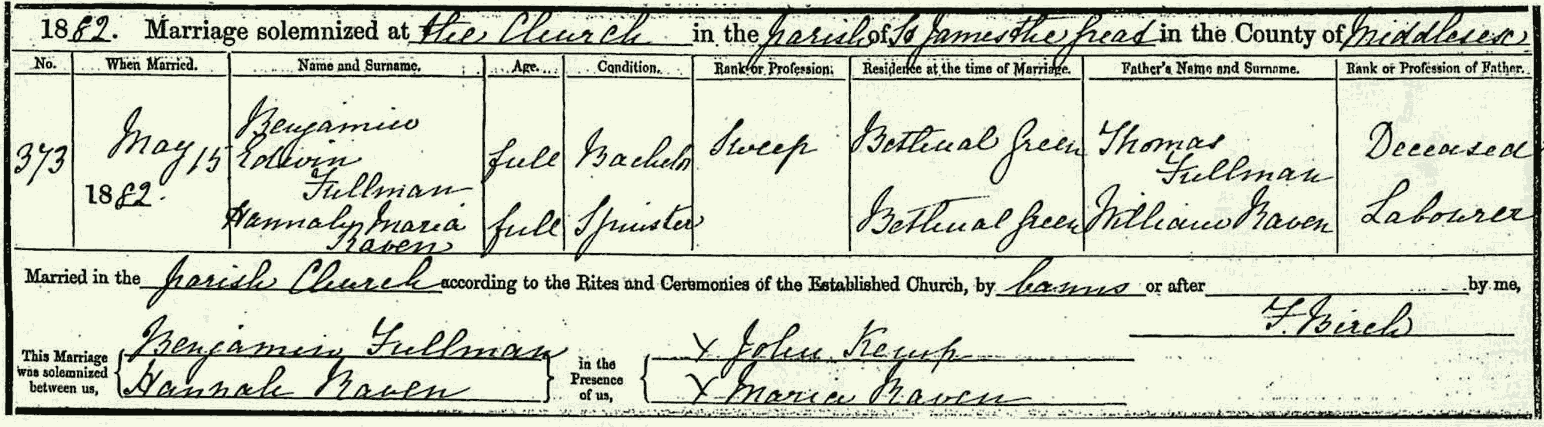 1882. Marriage solemnized at the Church in the parish of St James the great in the County of Middlesex
No. When Married. Name and Surname. Age. Condition. Rank or Profession. Residence at the time of Marriage. Father's Name and Surname. Rank or Profession of Father.
373 May 15 1882. Benjamin Edwin Fullman full Bachelor Sweep Bethnal Green Thomas Fullman Deceased
Hannah Maria Raven full Spinster Bethnal Green William Raven Labourer
Married in the parish Church according to the Rites and Ceremonies of the Established Church, by banns or after by me,
F. Birch
This Marriage was solemnized between us, Benjamin Fullman Hannah Raven in the Presence of us, X John Kemp X Maria Raven